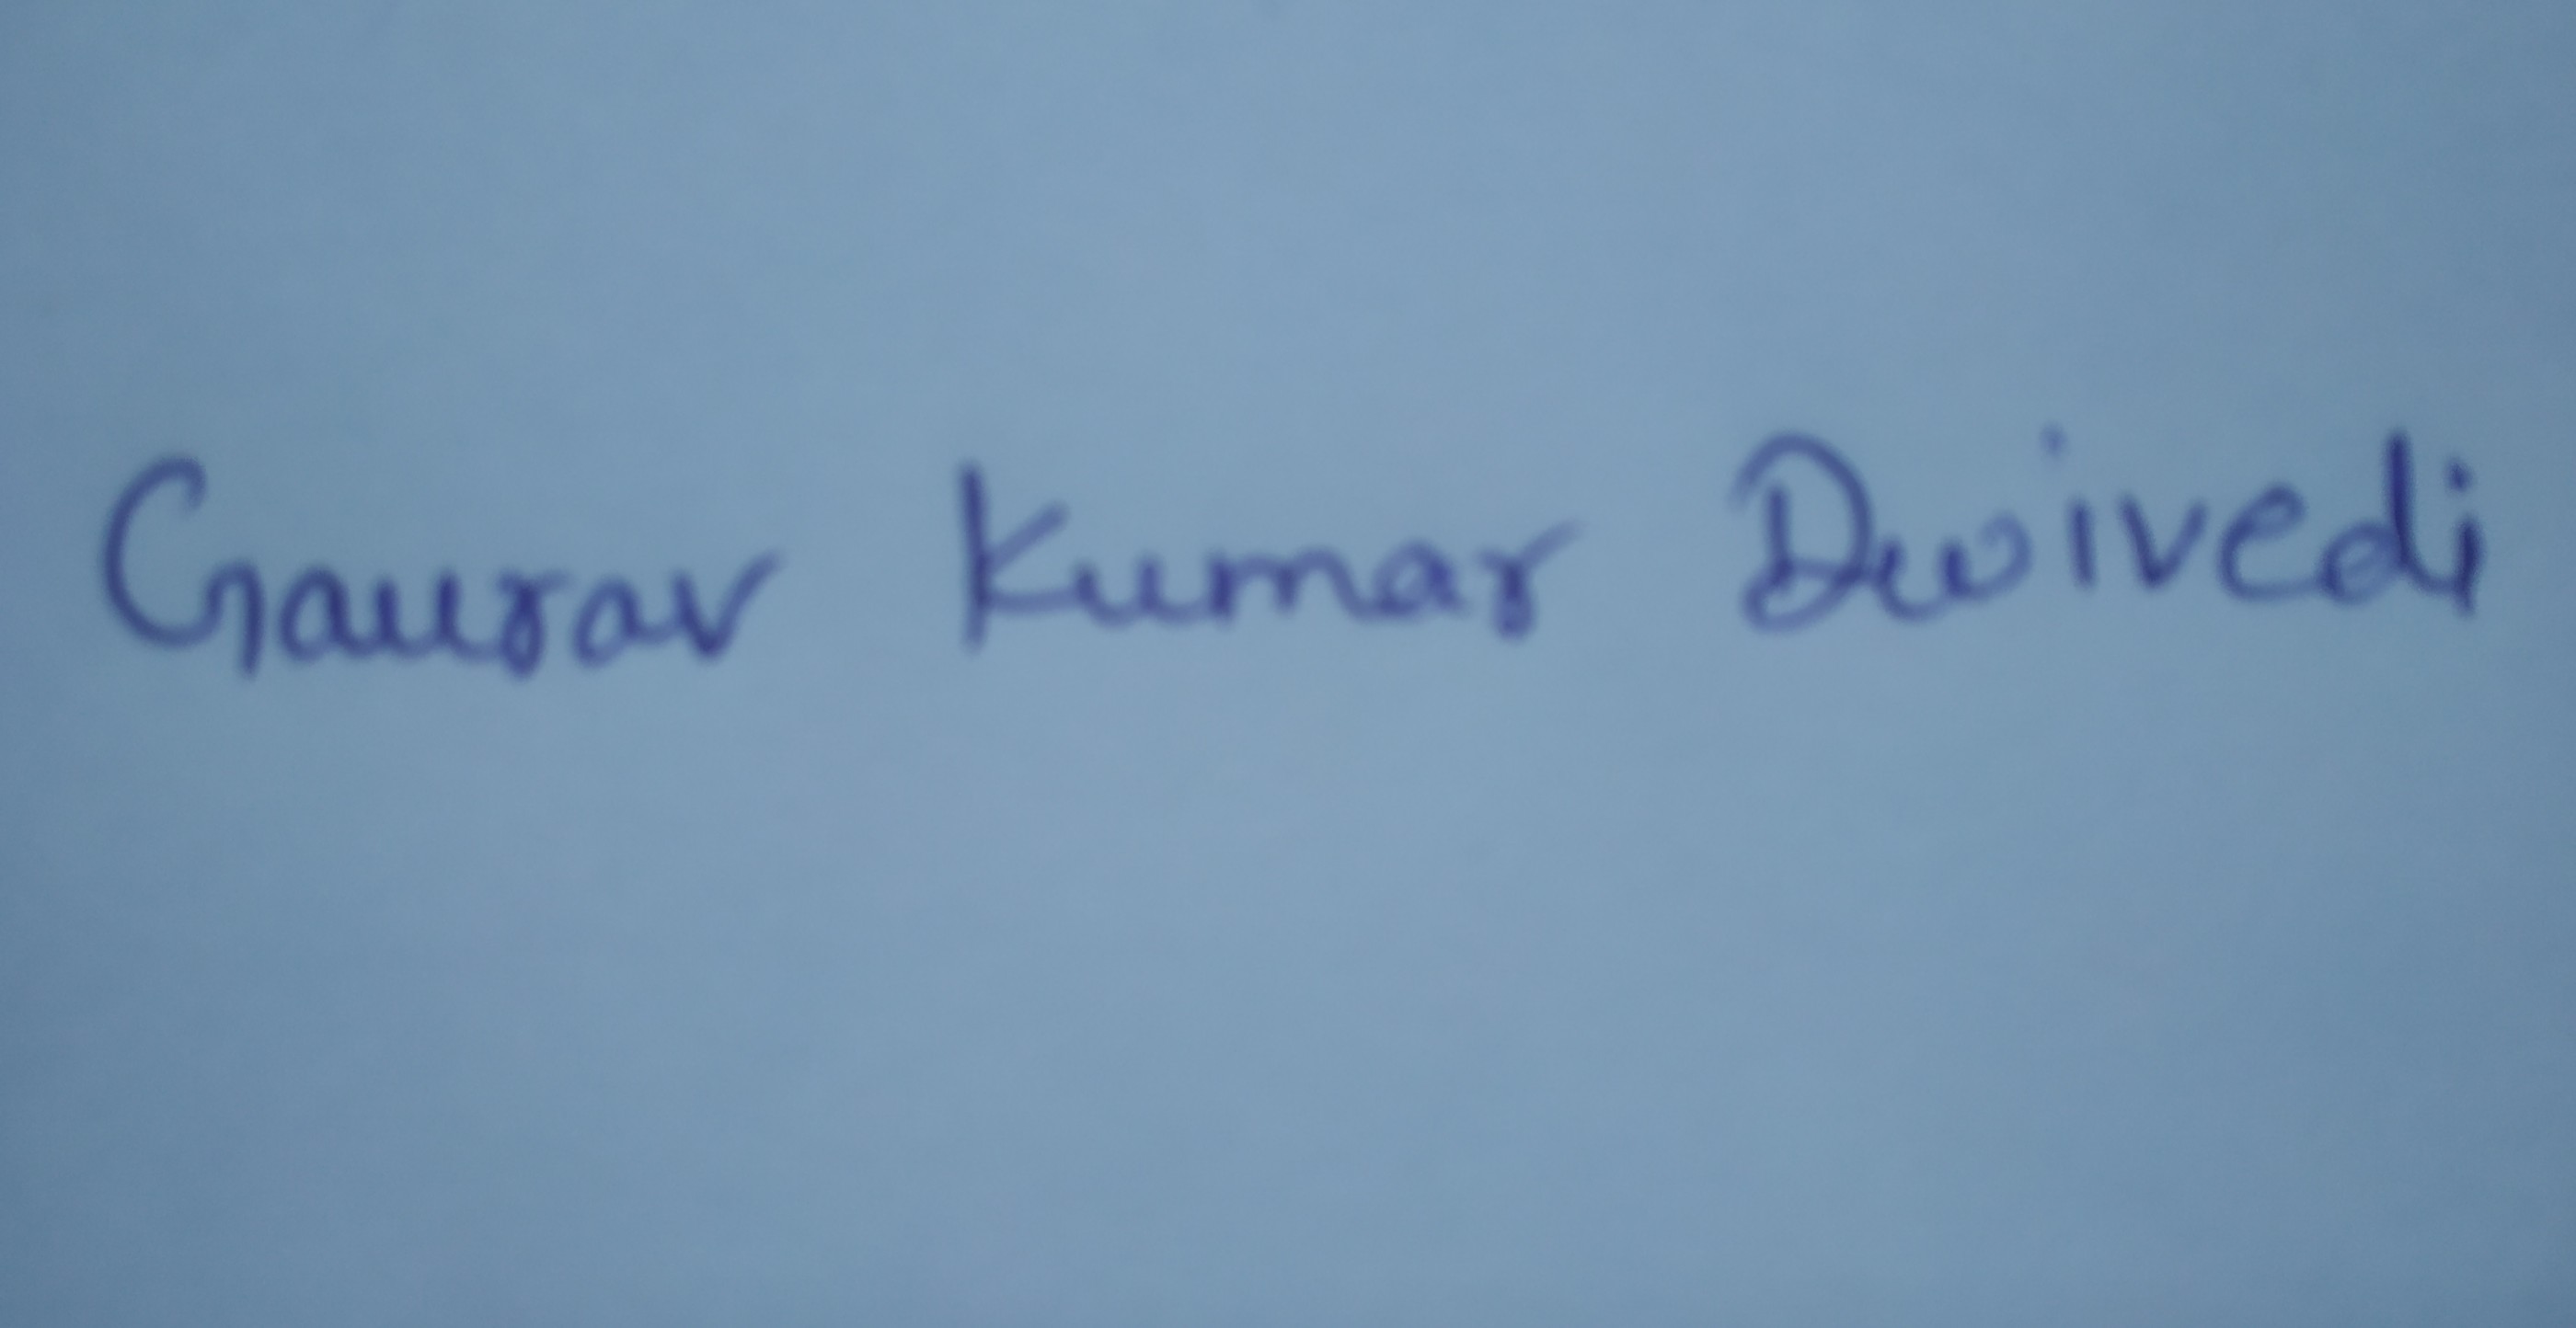 Gaurav Kumar Dwivedi